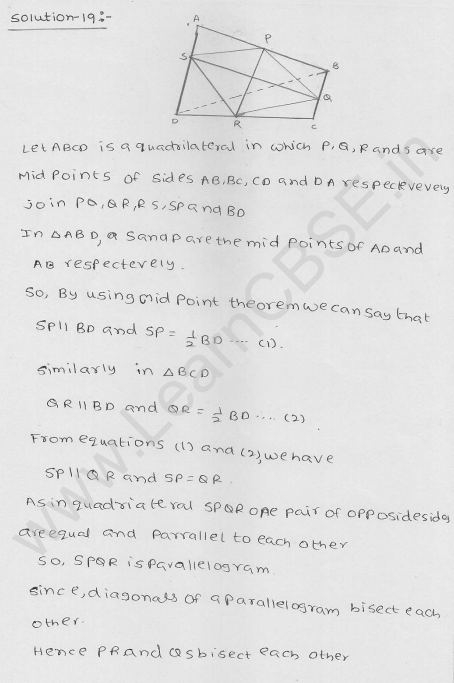 Solution-19:-
A
P
B
S
Q
D
R
C
Let ABCD is a quadrilateral in which P, Q, R and S are
Mid Points of sides AB, BC, CD and DA respectevevely
join PQ, QR, RS, SP and BD
In △ABD, S and P are the mid points of AD and
AB respectevely.
So, By using mid point theorem we can say that
SP || BD and SP = 1/2 BD .... (1).
Similarly in △BCD
QR || BD and QR = 1/2 BD .... (2)
From equations (1) and (2), we have
SP || QR and SP = QR.
As in quadriateral SPQR one pair of opposidesides
are equal and parrallel to each other
So, SPQR is parallelogram.
Since, diagonals of a parallelogram bisect each
other.
Hence PR and QS bisect each other
www.LearnCBSE.in